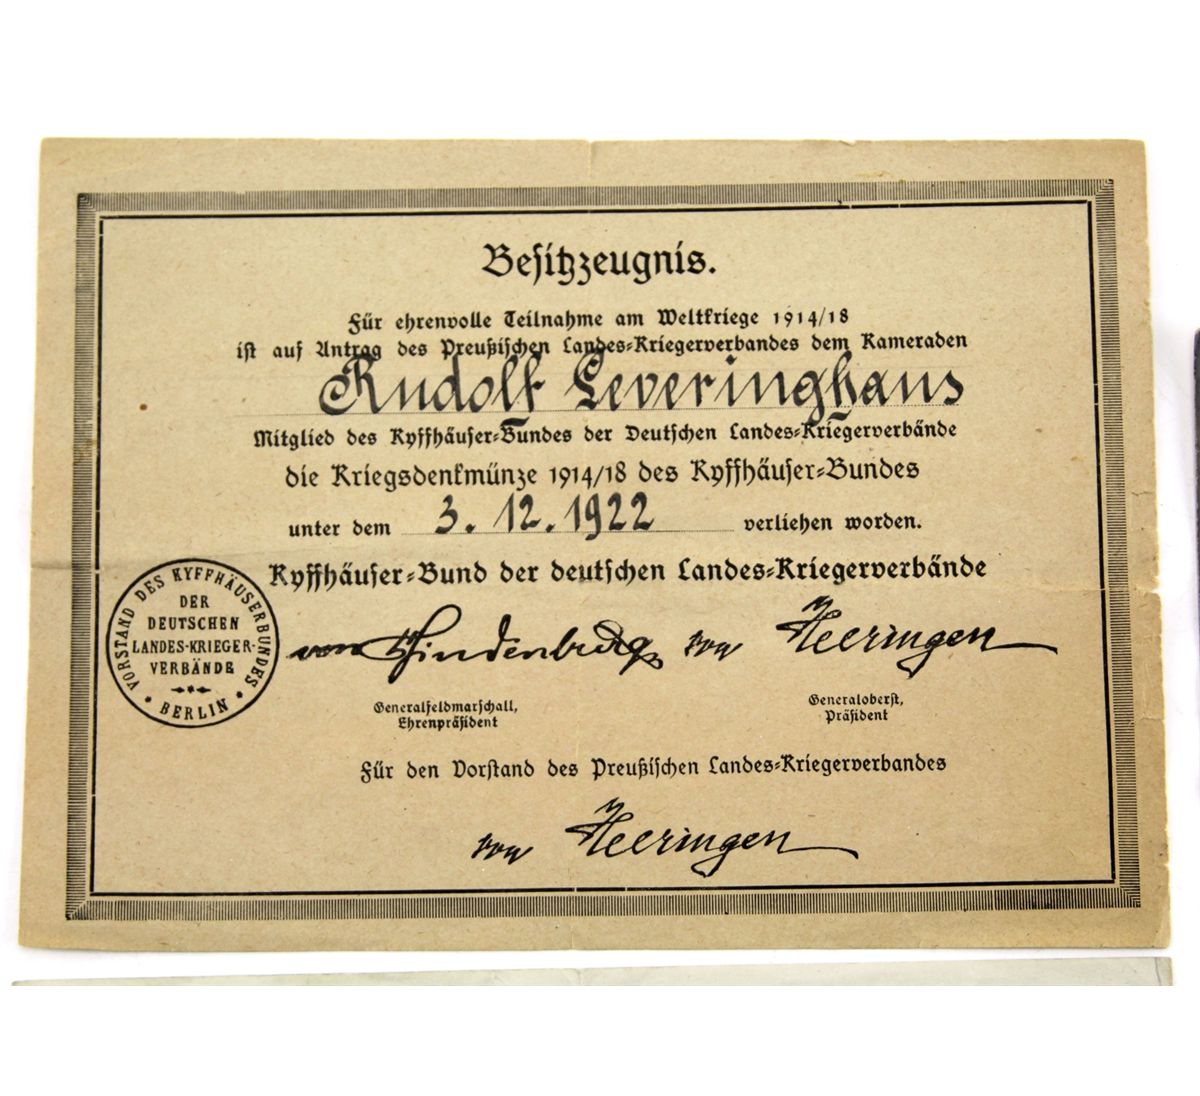 Besitzzeugnis.
Für ehrenvolle Teilnahme am Weltkriege 1914/18
ist auf Antrag des Preußischen Landes-Kriegerverbandes dem Kameraden
Rudolf Leveringhaus
Mitglied des Kyffhäuser-Bundes der Deutschen Landes-Kriegerverbände
die Kriegsdenkmünze 1914/18 des Kyffhäuser-Bundes
unter dem 3. 12. 1922 verliehen worden.
Kyffhäuser-Bund der deutschen Landes-Kriegerverbände
VORSTAND DES KYFFHÄUSERBUNDES
DER
DEUTSCHEN
LANDES-KRIEGER-
VERBÄNDE
* BERLIN *
von Hindenburg von Heeringen
Generalfeldmarschall, Generaloberst,
Ehrenpräsident Präsident
Für den Vorstand des Preußischen Landes-Kriegerverbandes
von Heeringen